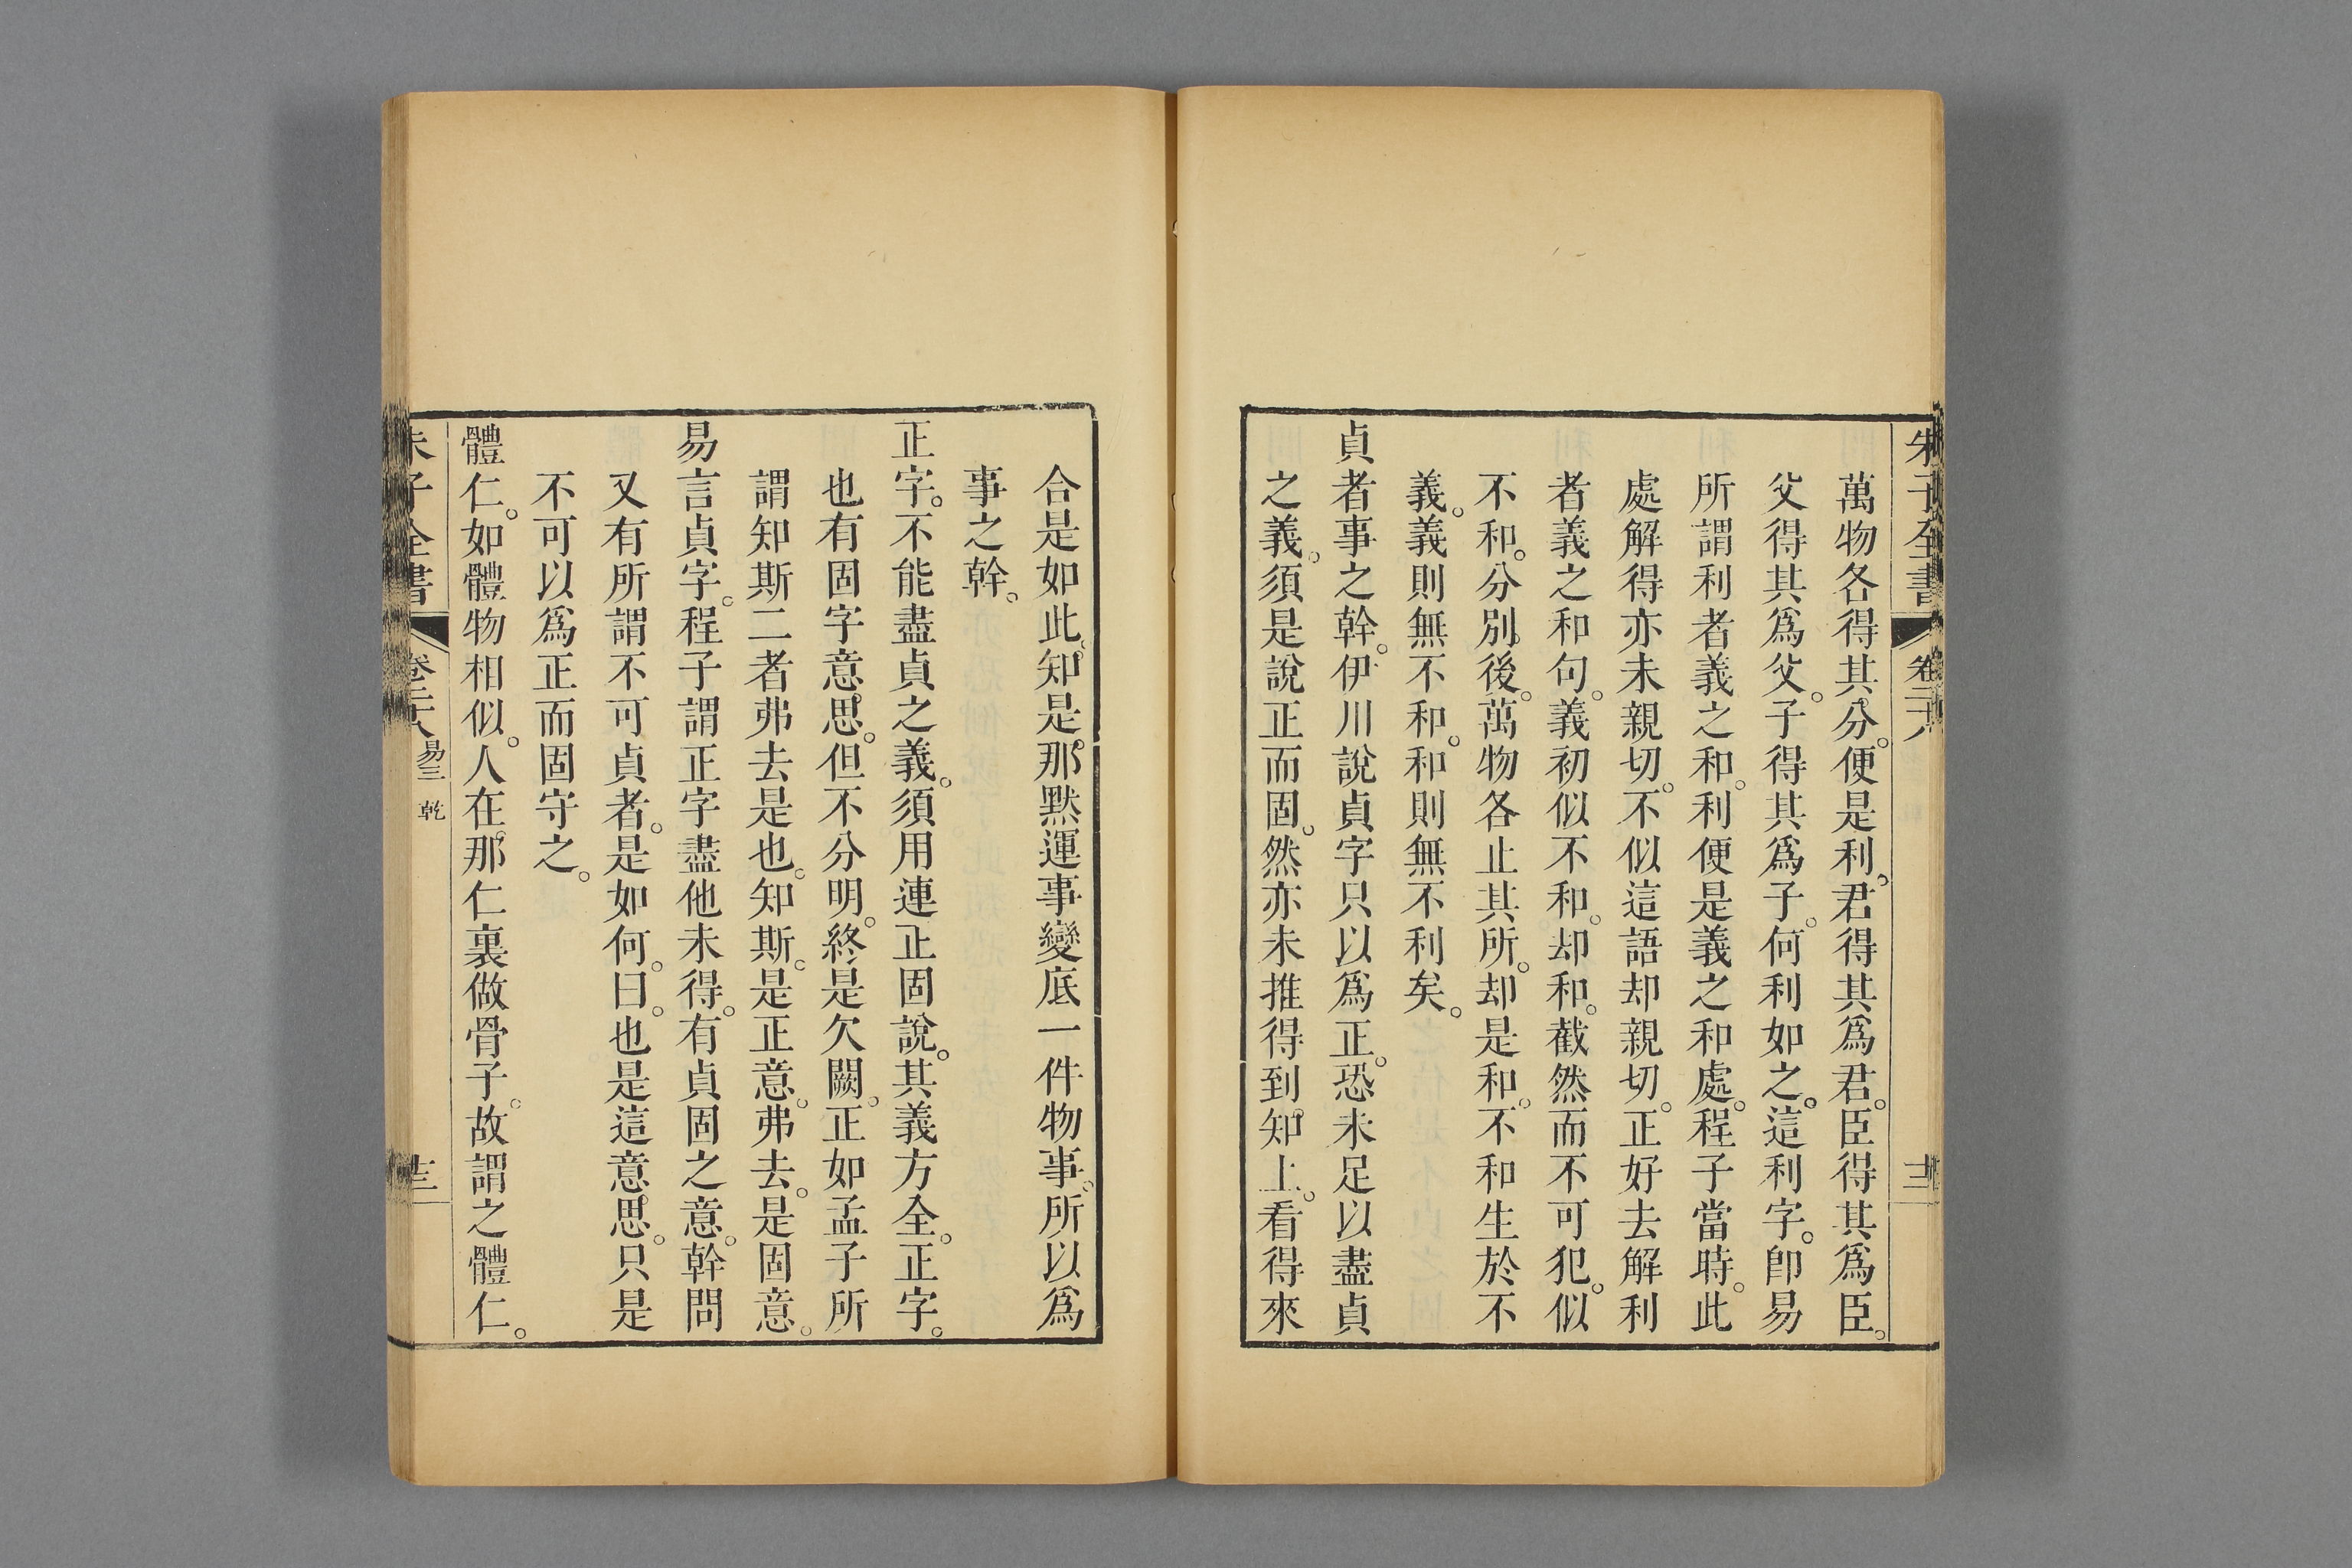 朱子全書 卷二十八 十二
萬物各得其分。便是利。君得其爲君。臣得其爲臣。
父得其爲父。子得其爲子。何利如之。這利字。卽易
所謂利者義之和。利便是義之和處。程子當時。此
處解得亦未親切。不似這語却親切。正好去解利
者義之和句。義初似不和。却和。截然而不可犯。似
不和。分別後。萬物各止其所。却是和。不和生於不
義。義則無不和。和則無不利矣。
貞者事之幹。伊川說貞字只以爲正。恐未足以盡貞
之義。須是說正而固。然亦未推得到知上。看得來
合是如此。知是那默運事變底一件物事。所以爲
事之幹。
正字。不能盡貞之義。須用連正固說。其義方全。正字。
也有固字意思。但不分明。終是欠闕。正如孟子所
謂知斯二者弗去是也。知斯。是正意。弗去。是固意。
易言貞字。程子謂正字盡他未得。有貞固之意。幹問
又有所謂不可貞者。是如何。曰。也是這意思。只是
不可以爲正而固守之。
體仁。如體物相似。人在那仁裏做骨子。故謂之體仁。
朱子全書 卷二十八 易三 乾 十三